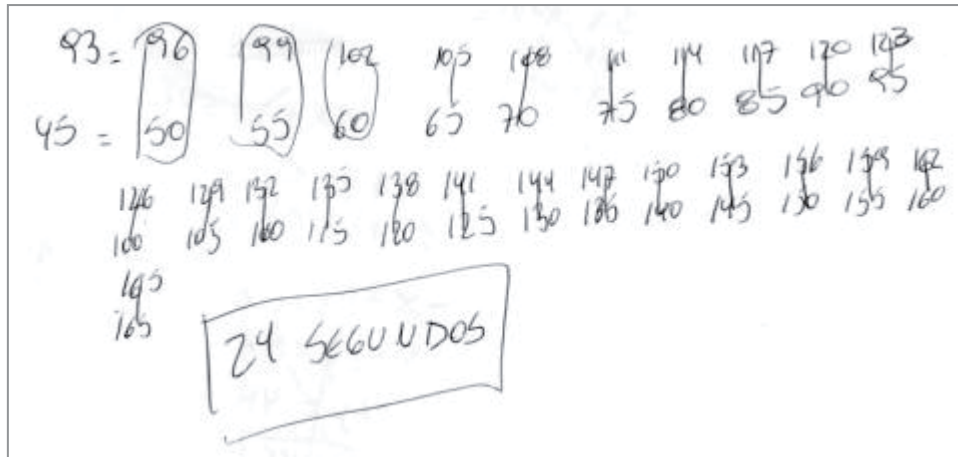 93 = 96 99 102 105 108 111 114 117 120 123
45 = 50 55 60 65 70 75 80 85 90 95
126 129 132 135 138 141 144 147 150 153 156 159 162
100 105 110 115 120 125 130 135 140 145 150 155 160
165
165
24 SEGUNDOS